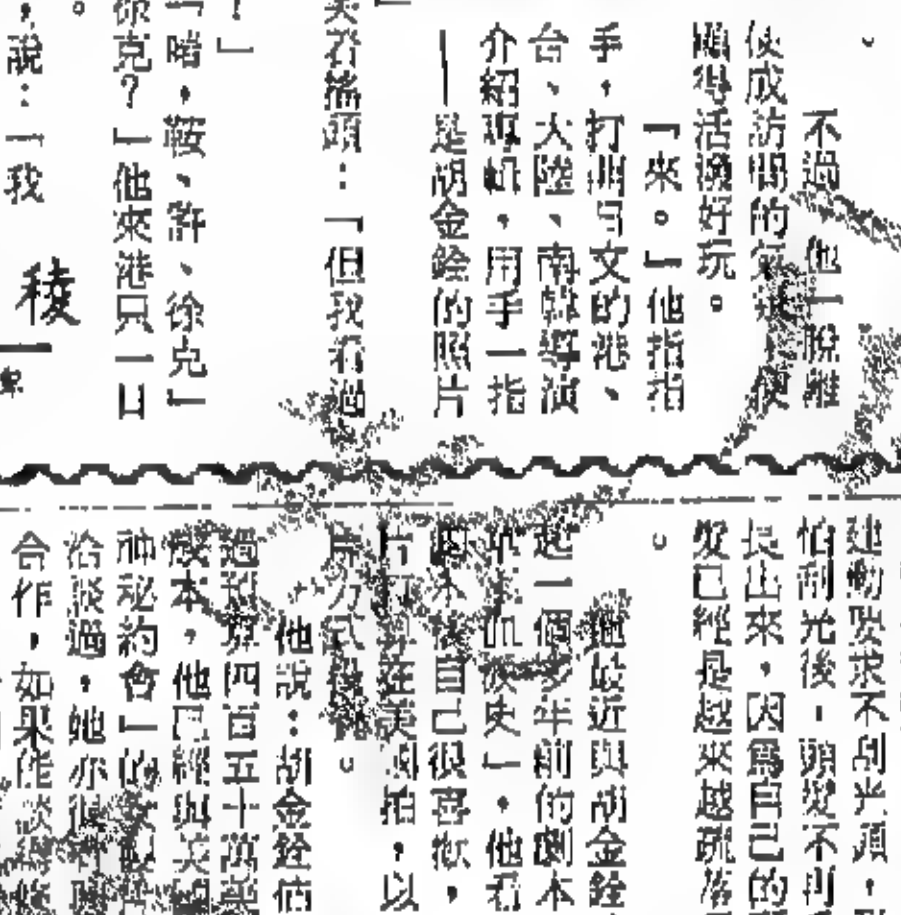 。
不過,他一脫離
後成訪問的氣氛,便
顯得活潑好玩。
「來。」他指指
手,打開日文的港、
台、大陸、南韓導演
介紹專輯,用手一指
—是胡金銓的照片
笑着搖頭:「但我看過
」
!」
「啫,鞍、許、徐克」
你克?」他來港只一日
。
,說:「我
稜
建勳要求不剃光頭,
怕剃光後,頭髮不再
長出來,因為自己的
髮已經是越來越疏落
。
他最近與胡金銓
起一個多年前的劇本
血淚史」,他看
劇本後自己很喜歡,
片打算在美國拍,以
片方式
他說:胡金銓估
過預算四百五十萬美
成本,他已經與
神秘約會」的
洽談過,她亦很
合作,如果能談